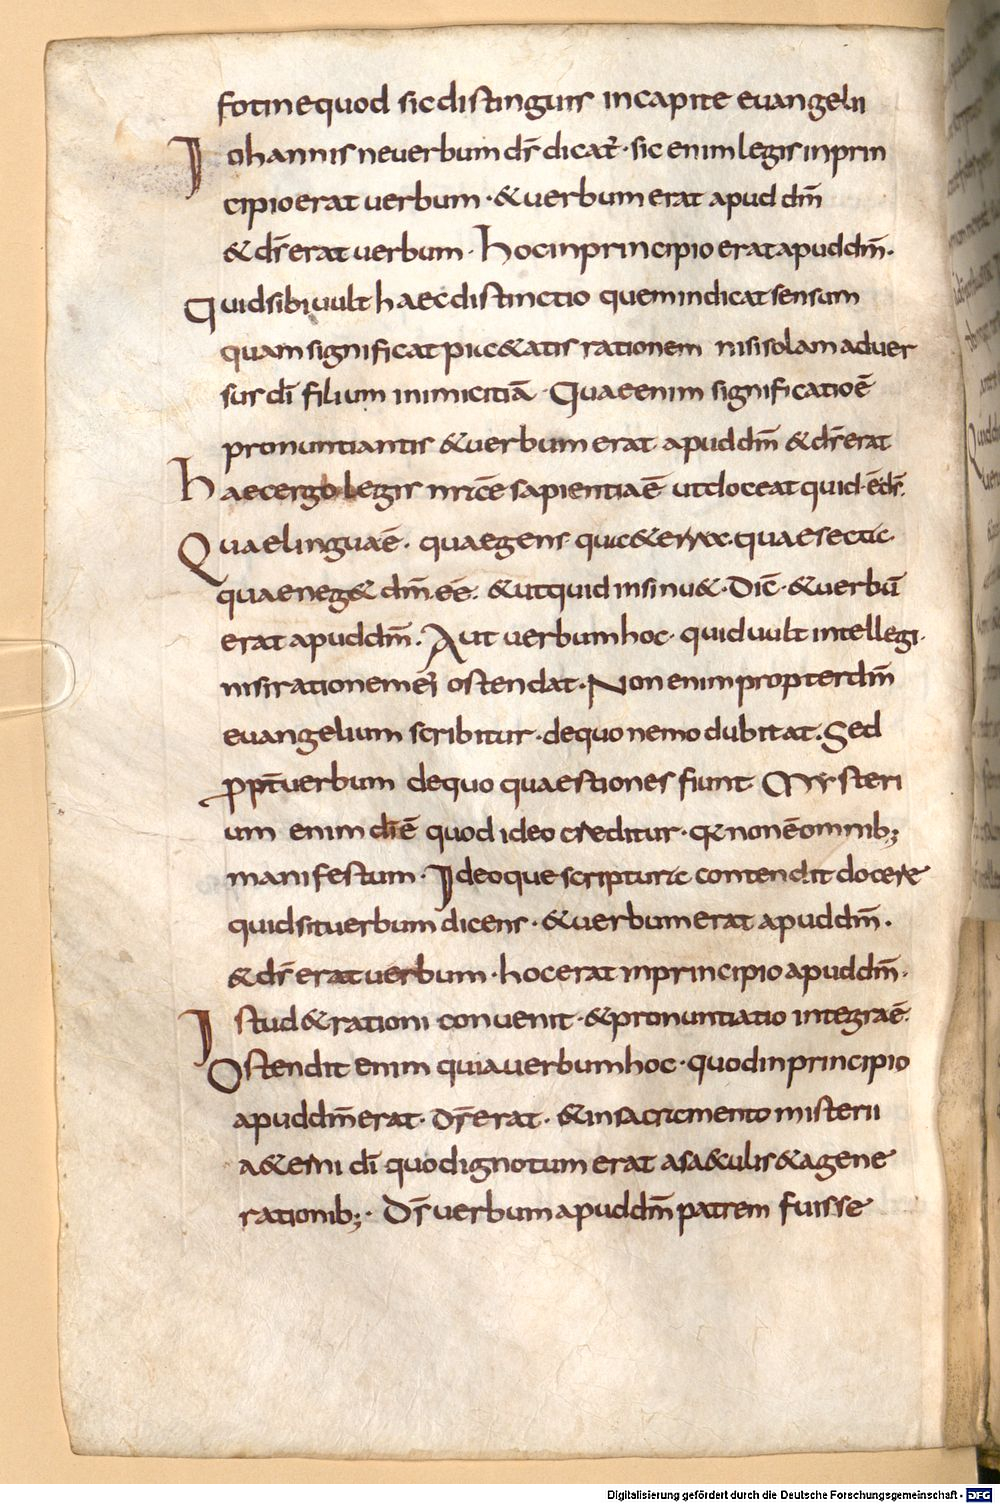 fotine quod sic distinguis in capite euangelii
Iohannis ne uerbum dr̄ dicat̄ · sic enim legis in prin
cipio erat uerbum · & uerbum erat apud dm̄
& dr̄ erat uerbum · hoc in principio erat apud dm̄ ·
Quid sibi uult haec distinctio quem indicat sensum
quam significat pi&atis rationem nisi solam aduer
sus dī filium inimicitiā · Quae enim significatio ē
pronuntiantis & uerbum erat apud dm̄ & dr̄ erat
haec ergo legis sapientia ē ut doceat quid · ē dr̄.
Quae lingua ē · quae gens quae secta ·
quae neg& dm̄ · eē · & ut quid insinu& · Dic̄ · & uerbū
erat apud dm̄ · Aut uerbum hoc · quid uult intellegi ·
nisi rationem ostendat · Non enim propter dm̄
euangelium scribitur · de quo nemo dubitat · Sed
ꝓpt̄ uerbum de quo quaestiones fiunt · Mysteri
um enim quod ideo creditur · non ē omnib;
manifestum · Ideoque scriptura contendit docere
quid sit uerbum dicens · & uerbum erat apud dm̄ ·
& dr̄ erat uerbum · hoc erat in principio apud dm̄ ·
Istud & rationi conuenit · & pronuntiatio integra ē ·
Ostendit enim quia uerbum hoc · quod in principio
apud dm̄ erat · Dr̄ erat · & in sacramento misterii
a&erni dī quod ignotum erat a sa&ulis & a gene
rationib; · Dr̄ uerbum apud dm̄ patrem fuisse
Digitalisierung gefördert durch die Deutsche Forschungsgemeinschaft - DFG